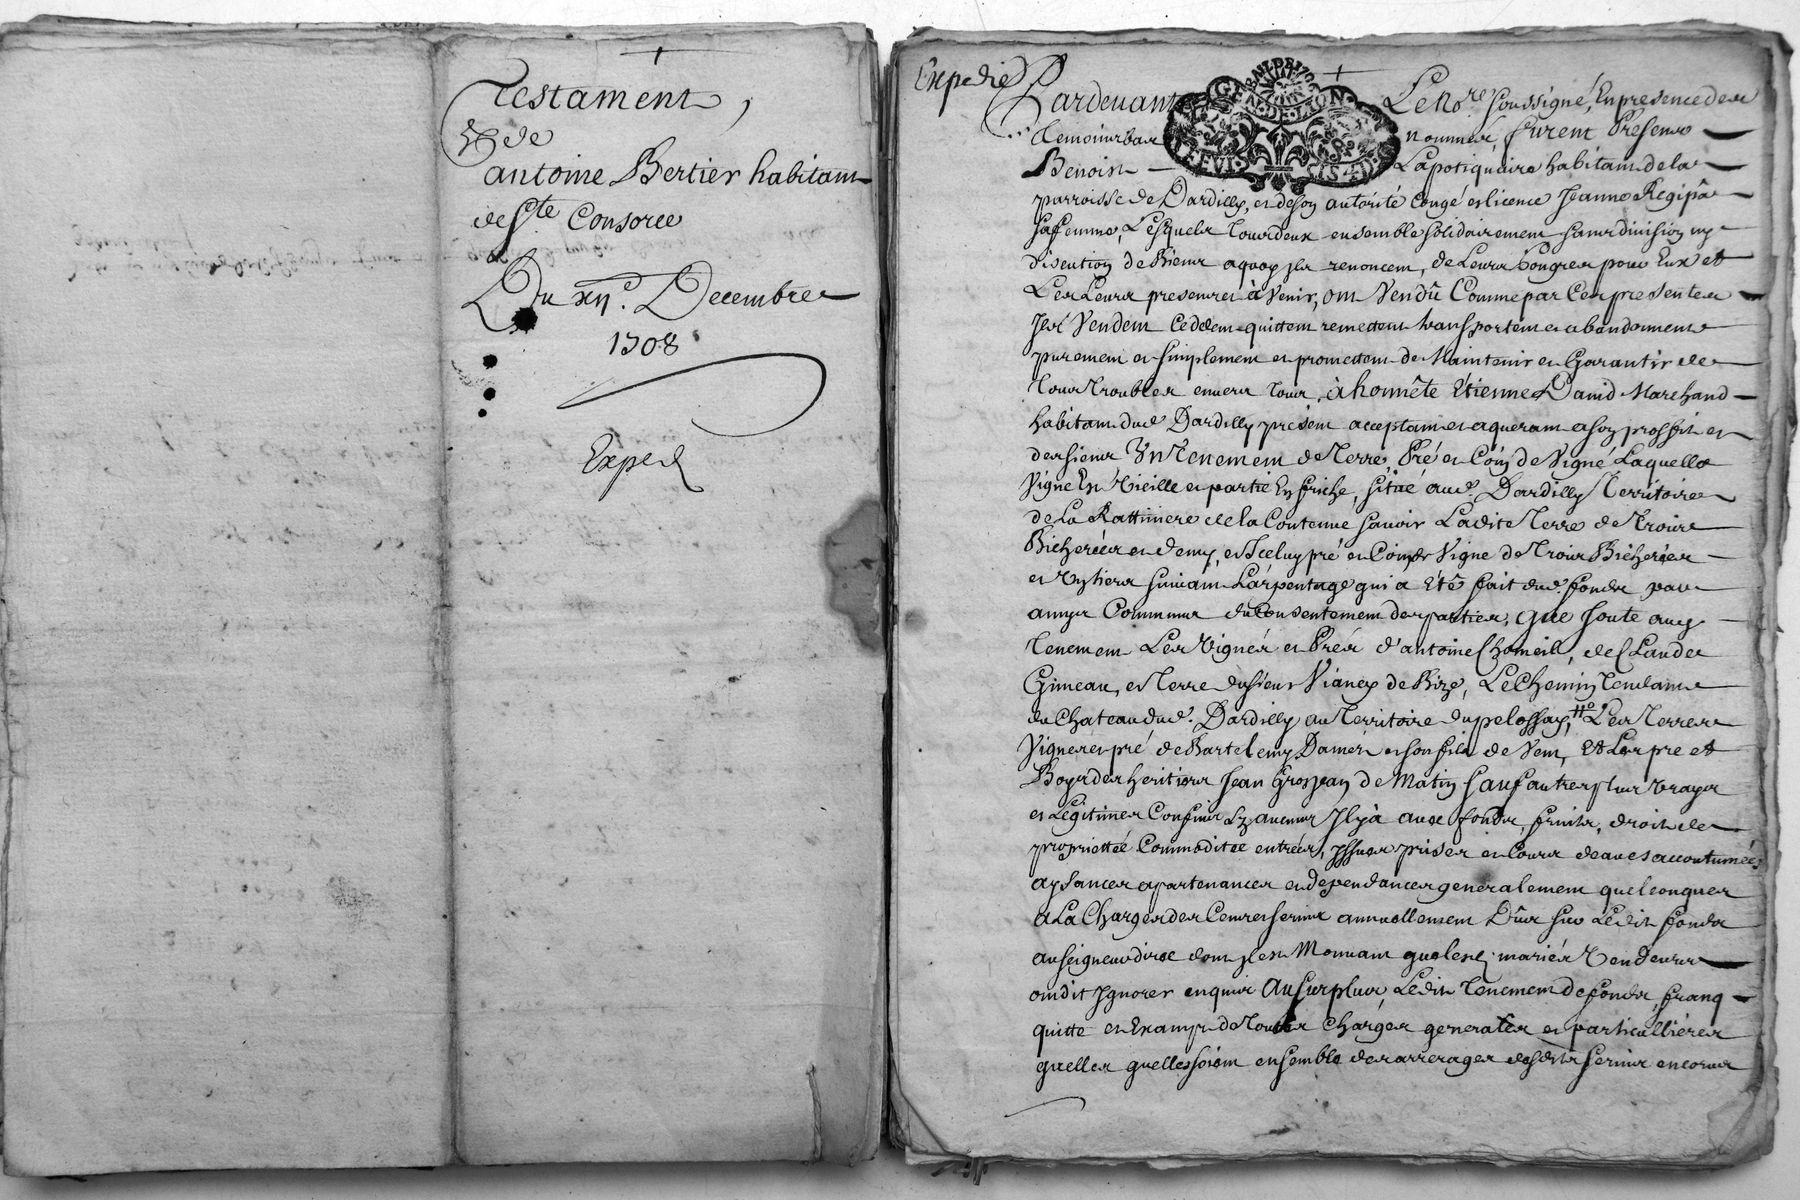 Testament
de
antoine Bertier habitant
de Ste Consorce
Du xii.e Decembre
1708
Exped
Expedié
Pardevant Le No.re soussigné, En presence des
temoins bas nommes, furent Presens
Benoist Lapotiquaire habitant de la
parroisse de Dardilly, et de son autorité Congé et licence Jeanne Régipâ
sa femme, Lesquels Tous deux ensemble solidairement sans division ny
discution de Biens a quoy ils renoncent, de Leurs Bongrés pour Eux et
Les Leurs presens et à Venir, ont Vendû Comme par Ces presentes
Ils Vendent Ceddent quittent remettent transportent et abandonnent
purement et simplement et promettent de Maintenir et Garantir de
Tous Troubles envers tous, à honnête Etienne David Marchand
habitant dud. Dardilly present acceptant et aquerant a son proffit et
des siens Un Tenement de Terre, Pré et Coin de Vigné Laquelle
Vigne Est Vieille et partie En friche, sitüé aud. Dardilly Territoire
de La Rattiniere de la Contenue sauoir Ladite Terre de Trois
Bicherées et demy, et Iceluy pré et Coin de Vigne de Trois Bicherées
et Un tiers suiuant L'arpentage qui a été fait dud. fonds par
amys Communs du Consentement des parties, que Joute aud.
Tenement Les Vignés et Prés d'antoine Chomeil, de Claude
Gimeau, et Terre du sieur Vianey de Bize, Le Chemin Tendant
du Chateau dud. Dardilly au Territoire du pelossay, Les Terres
Vignes et pré de Bartelemy Damés et son fils de Vent, Et Les pre et
Boys des heritiers Jean Grosjean de Matin sauf autres plus vrays
et Légitimes Confins sy aucuns Il y à auec fonds, fruits, droits de
proprietteé Commoditée entrées, Issues prises et Cours deaues accoutumées
aysances apartenances et dependances generalement quelconques
a La Charge des Cens et seruis annuellement Dûs sur Ledit fonds
au seigneur direct dont Il est Mouuant que lesd. mariés Vendeurs
ont dit Ignorer enquis Au surplus, Ledit Tenement de fonds, franq
quitte et Exampt de Toutes Chargés generales et particullières
quelles quelles soient ensemble des arrerages desdits seruis encourus